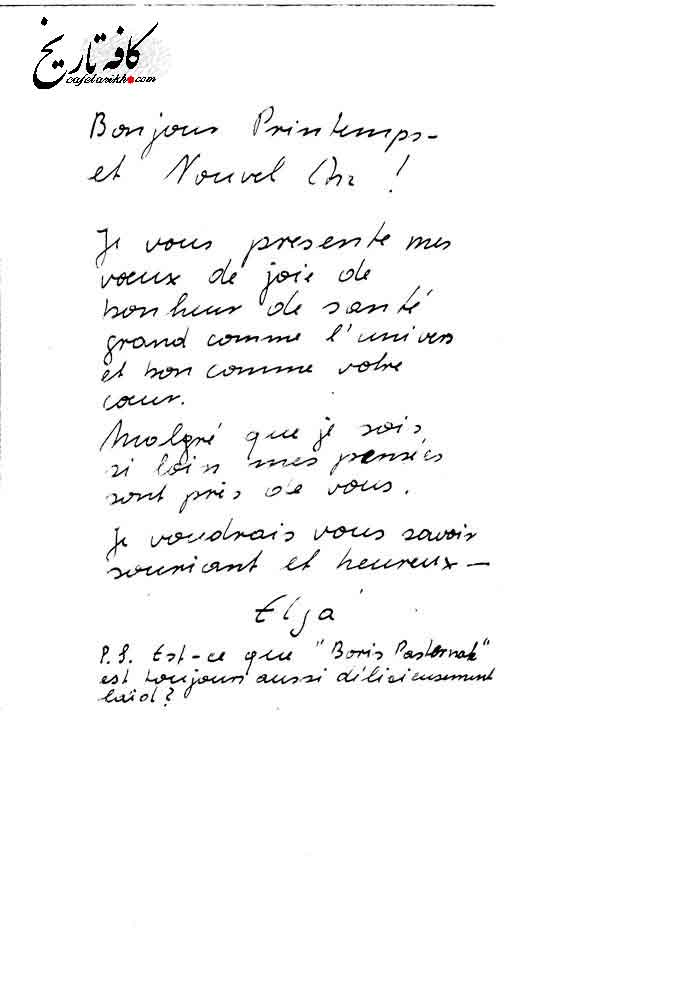 کافه تاریخ
cafetarikh.com
Bonjour Printemps-
et Nouvel An !
Je vous presente mes
vœux de joie de
bonheur de santé
grand comme l'univers
et bon comme votre
cœur.
Malgré que je sois
si loin mes pensées
sont près de vous.
Je voudrais vous savoir
souriant et heureux —
Elga
P.S. Est-ce que "Boris Pasternak"
est toujours aussi délicieusement
laid ?